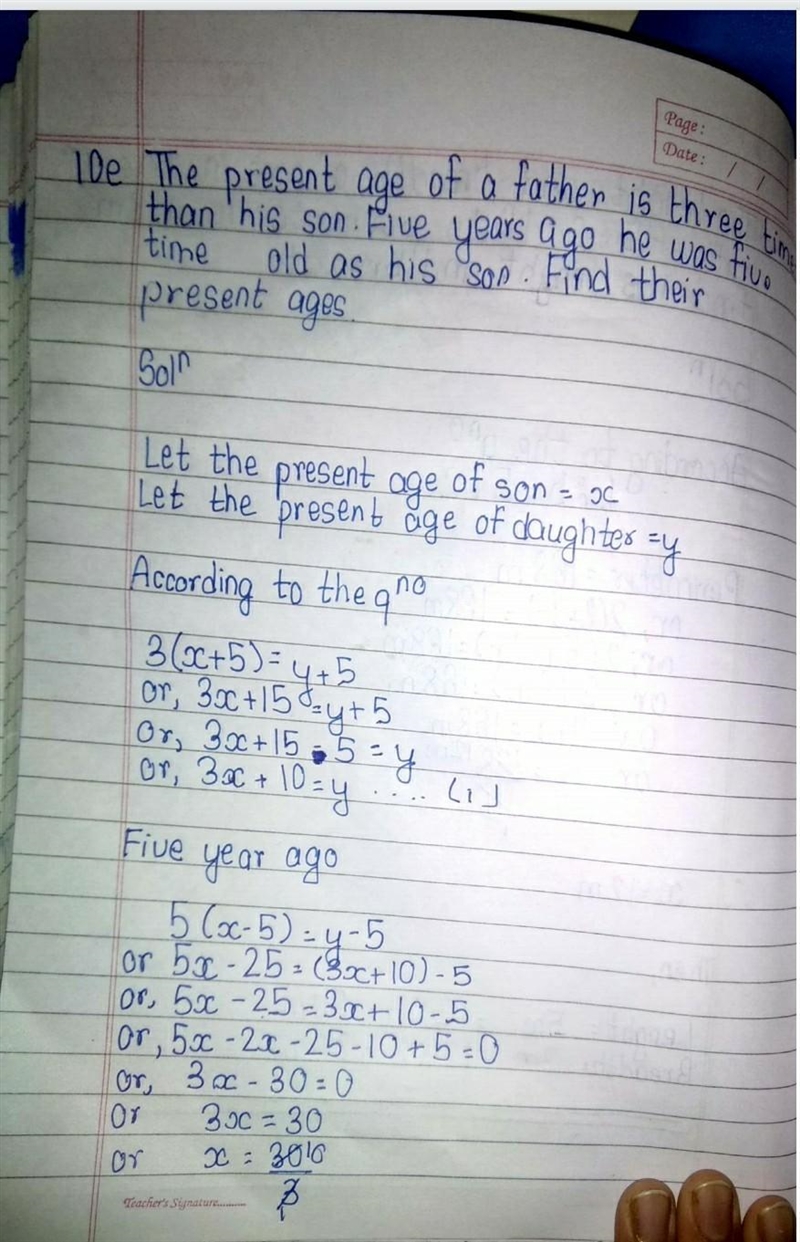 Page:
Date: / /
10e The present age of a father is three time
than his son. Five years ago he was five
time old as his son. Find their
present ages.
Solⁿ
Let the present age of son = x
Let the present age of daughter = y
According to the qⁿᵒ
3(x+5) = y+5
or, 3x+15 = y+5
or, 3x+15 - 5 = y
or, 3x + 10 = y .... (i)
Five year ago
5(x-5) = y-5
or 5x - 25 = (3x+10) - 5
or, 5x - 25 = 3x+10-5
or, 5x - 2x - 25 - 10 + 5 = 0
or, 3x - 30 = 0
or 3x = 30
or x = 30 10
3
Teacher's Signature..........